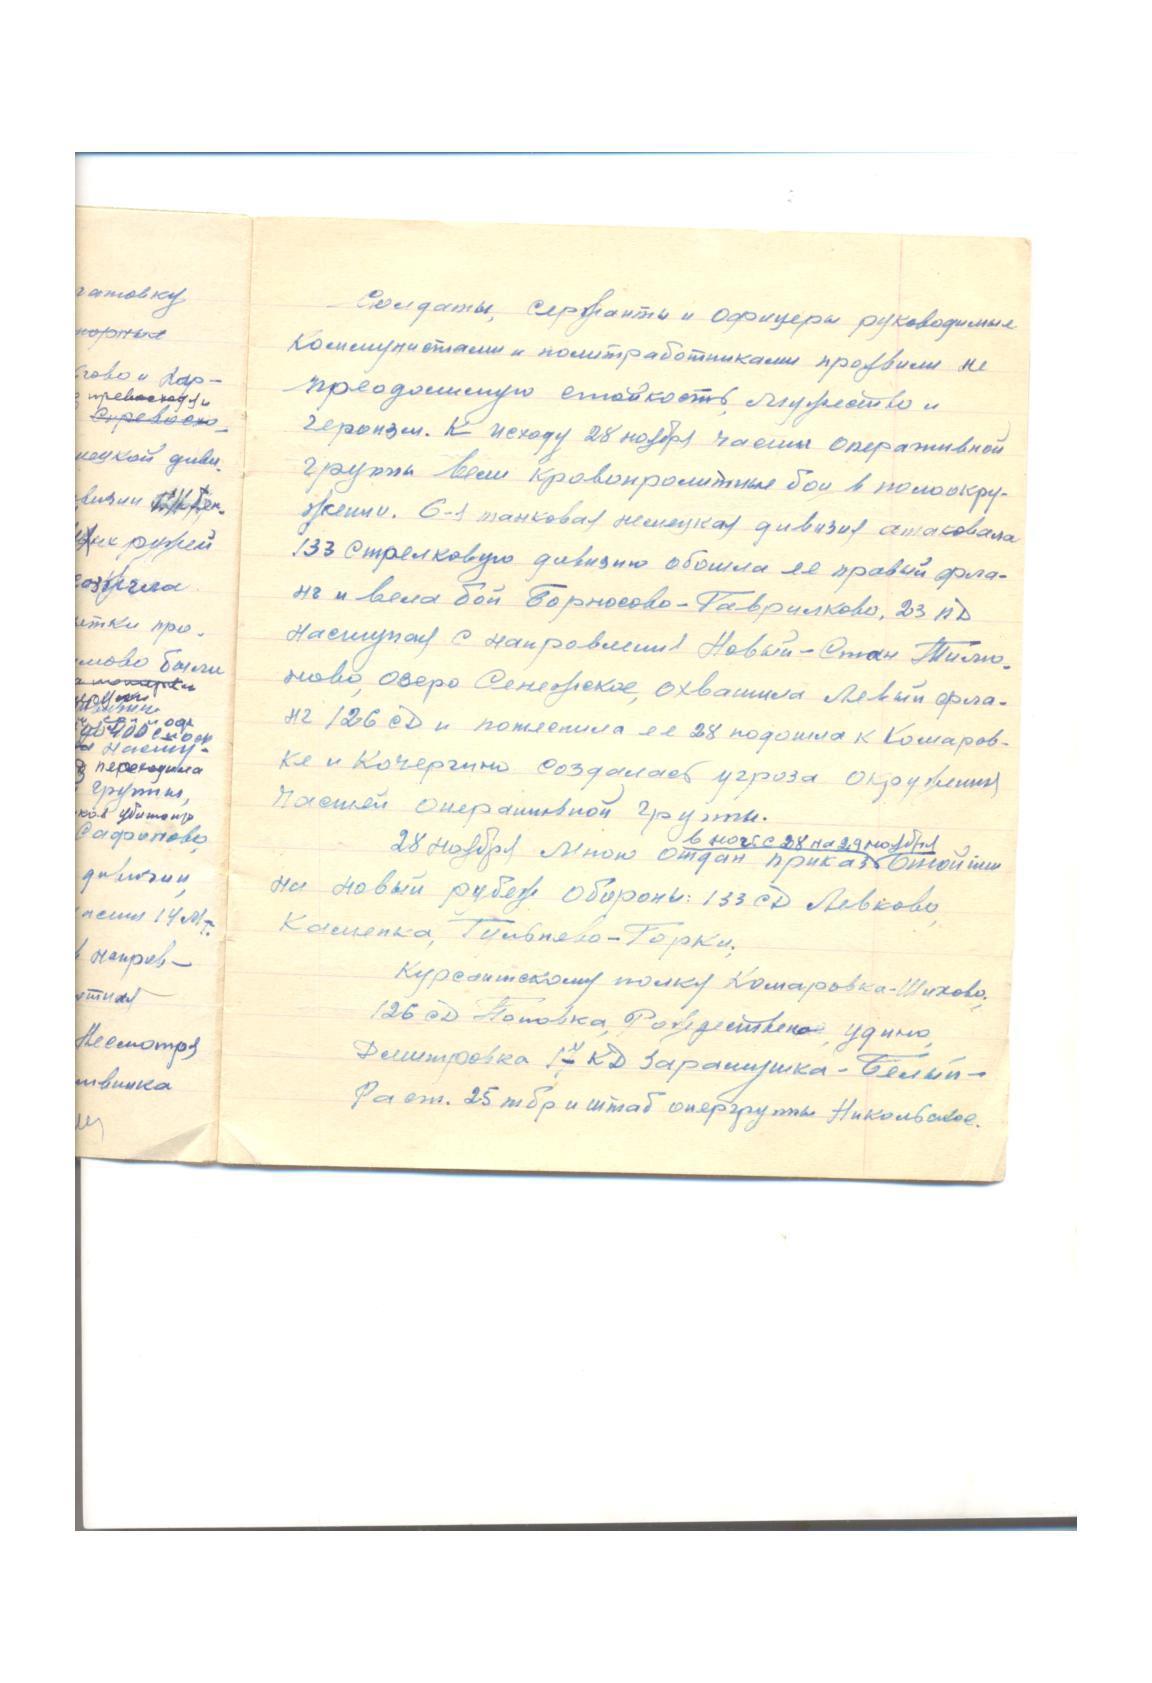 гатовку
порных
гово и Кар-
превосходя
Спревосхо-
мецкой диви.
визии
их ружей
азгула
итки про.
лово были
да 400 солд
а насту-
переходила
группы,
ков убитыми
Сафоново,
дивизии,
части 14 МП.
направ-
Несмотря
Солдаты, сержанты и офицеры руководимые
Коммунистами и политработниками проявили не
преодолимую стойкость, мужество и
героизм. К исходу 28 ноября части оперативной
группы вели кровопролитные бои в полоокру-
жении. 6-я танковая немецкая дивизия атаковала
133 стрелковую дивизию обошла ее правый фла-
нг и вела бой Борносово-Гаврилково, 23 ПД
наступая с направления Новый-Стан Тимо-
ново, озеро Сенежское, охватила левый фла-
нг 126 СД и потеснила ее 28 подошла к Комаров-
ке и Кочергино создалась угроза окружения
частей оперативной группы.
в ночь с 28 на 29 ноября
28 ноября мною отдан приказ отойти
на новый рубеж обороны: 133 СД Левково,
Каменка, Тильнево-Горки,
Курсантскому полку Комаровка-Шихово,
126 СД Поповка, Рождествено, Удино,
Дмитровка 17 КД Зарамушка-Белый-
Раст. 25 тбр и штаб опергруппы Никольское.